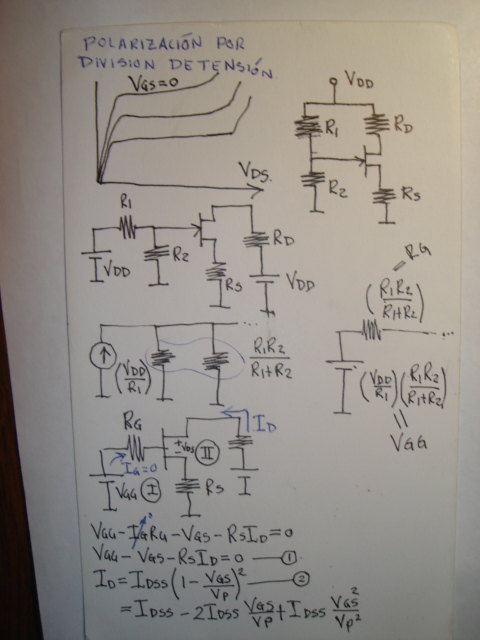 POLARIZACIÓN POR
DIVISION DE TENSIÓN.
VGS=0
VDS.
VDD
R1
RD
R2
RS
R1
R2
VDD
RS
RD
VDD
RG
(R1R2/R1+R2)
...
(VDD/R1)(R1R2/R1+R2)
VGG
...
(VDD/R1)
R1R2/R1+R2
RG
IG=0
VGG I
+
VDS
-
II
ID
RS
VGG-IGRG-VGS-RSID=0
VGG-VGS-RSID=0 — 1
ID=IDSS(1-VGS/VP)² — 2
=IDSS-2IDSS VGS/VP+IDSS VGS²/VP²